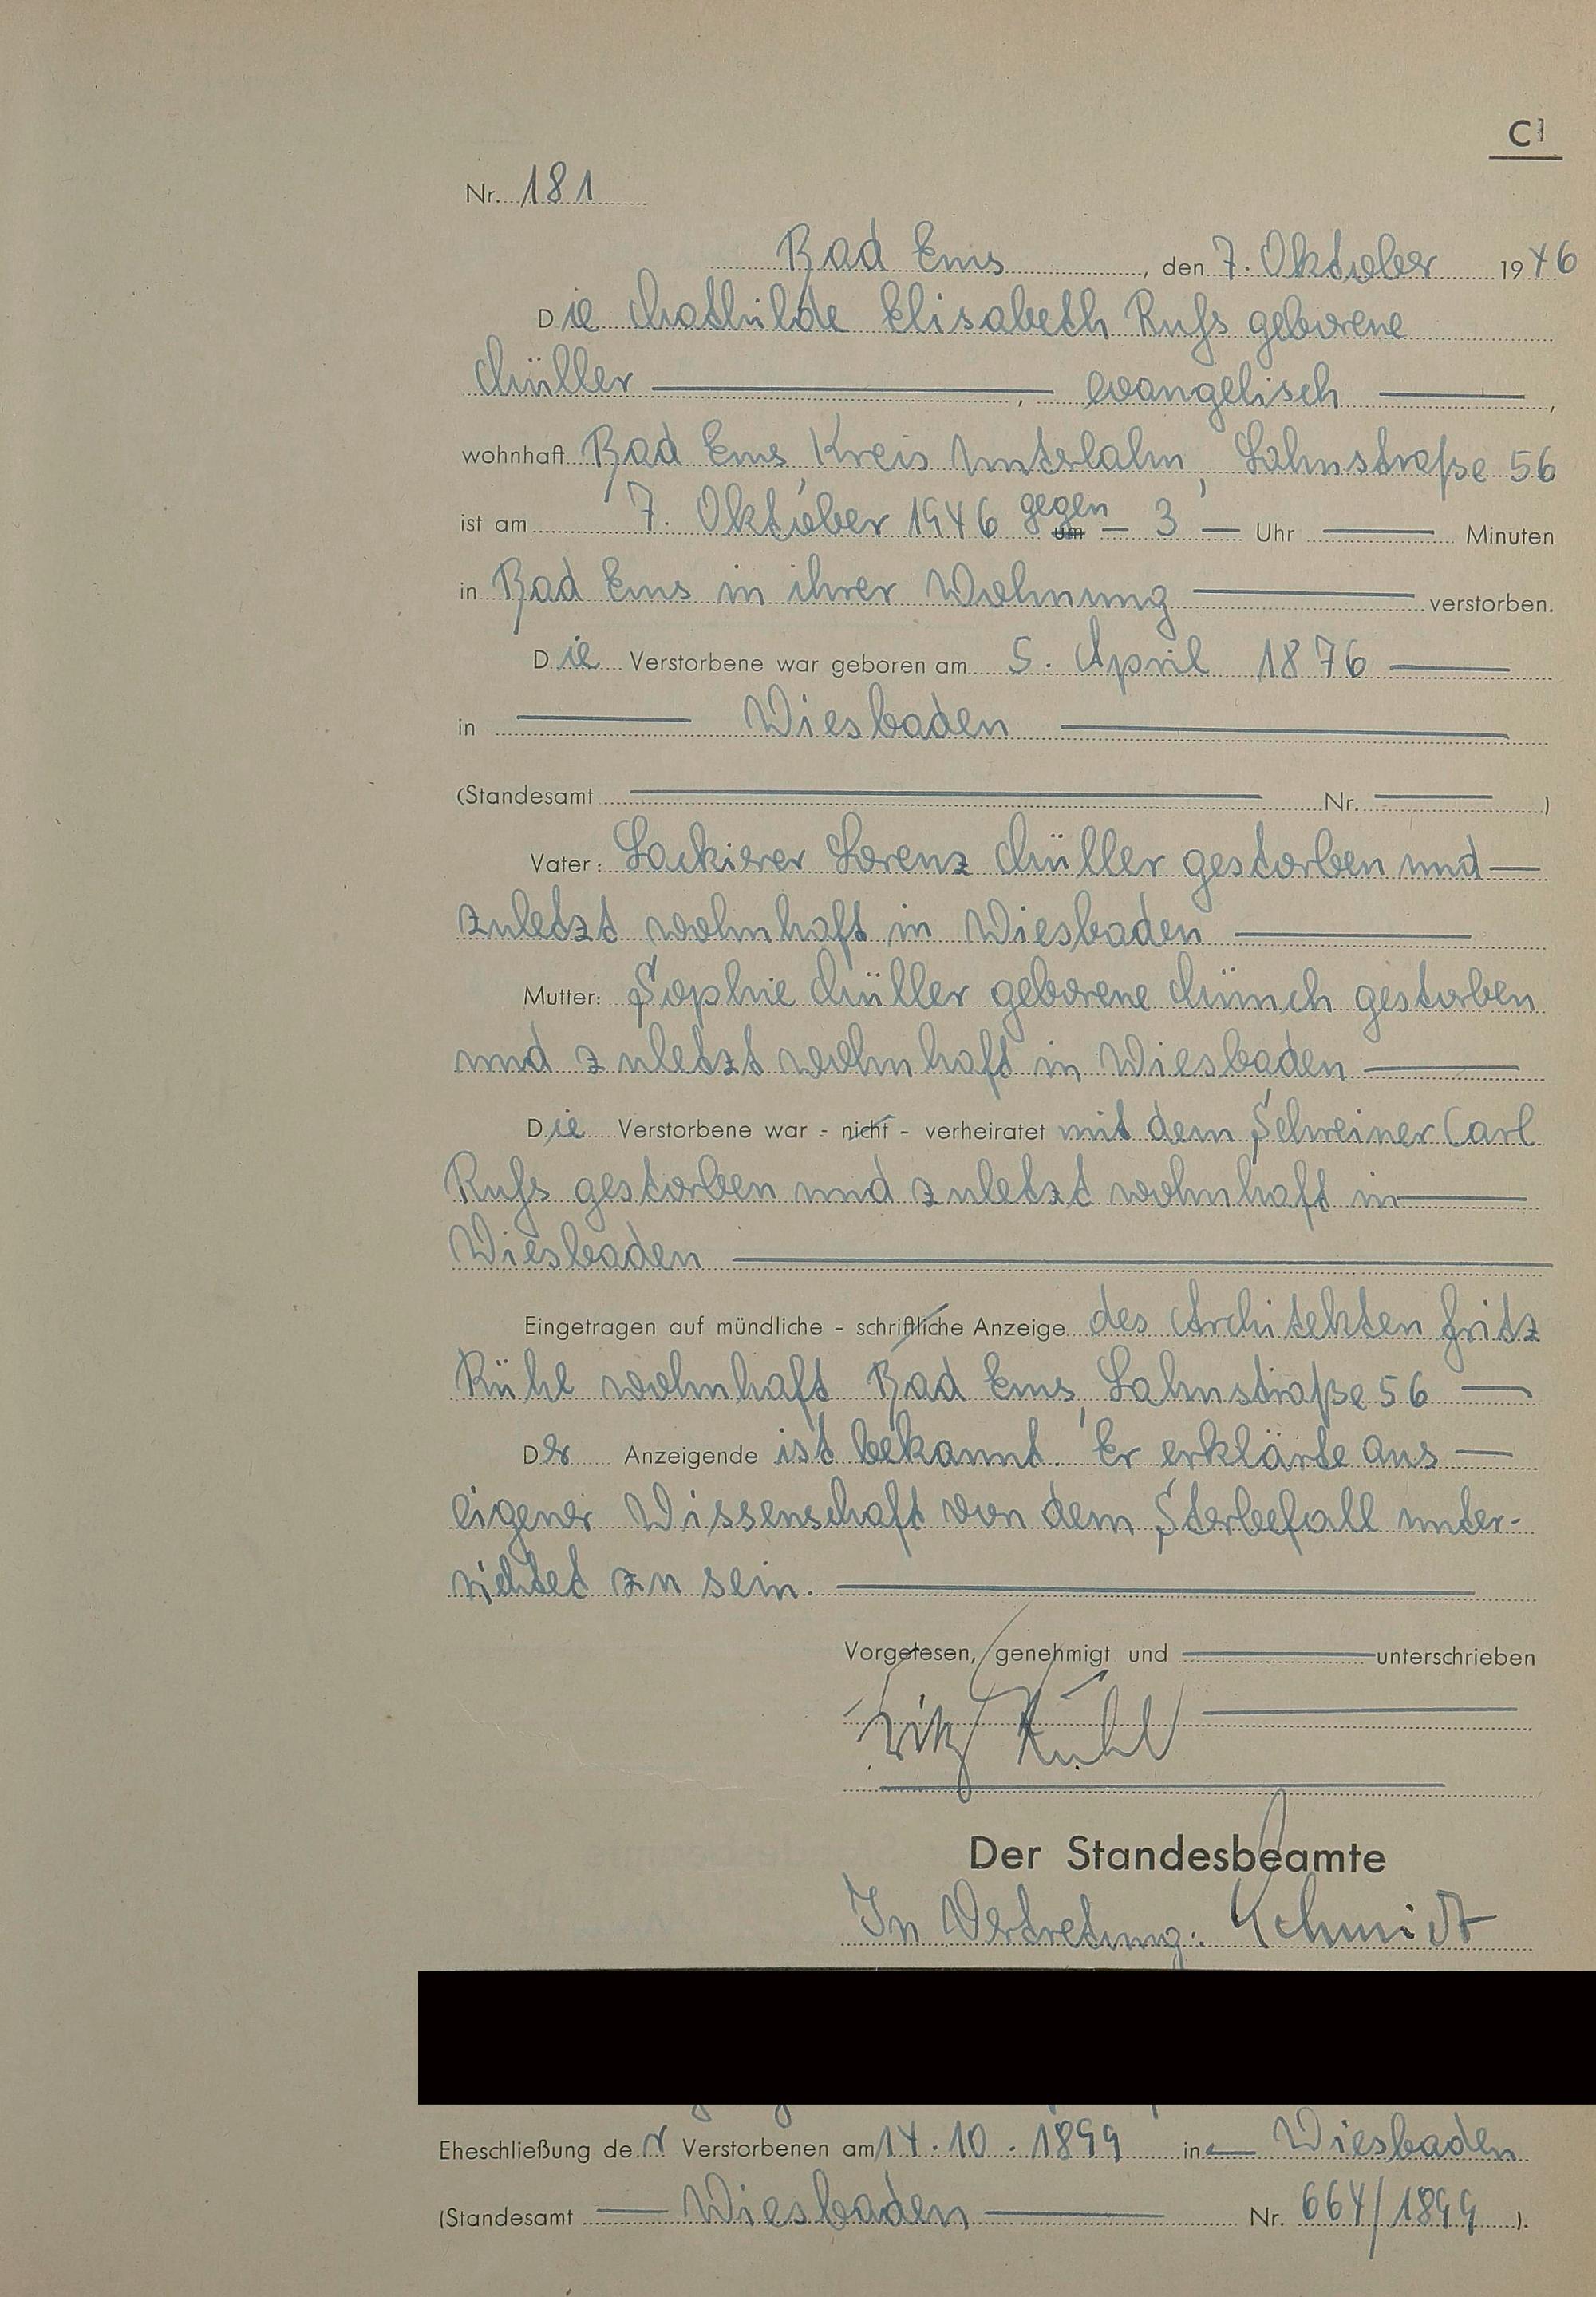 C1
Nr. 181
Bad Ems, den 7. Oktober 1946
Die Mathilde Elisabeth Rufs geborene
Müller, evangelisch,
wohnhaft Bad Ems, Kreis Unterlahn, Lahnstraße 56
ist am 7. Oktober 1946 gegen um 3 Uhr Minuten
in Bad Ems in ihrer Wohnung verstorben.
Die Verstorbene war geboren am 5. April 1876
in Wiesbaden
(Standesamt Nr. )
Vater: Lackierer Lorenz Müller gestorben und
zuletzt wohnhaft in Wiesbaden
Mutter: Sophie Müller geborene Münch gestorben
und zuletzt wohnhaft in Wiesbaden
Die Verstorbene war - nicht - verheiratet mit dem Schreiner Carl
Rufs gestorben und zuletzt wohnhaft in
Wiesbaden
Eingetragen auf mündliche - schriftliche Anzeige des Architekten Fritz
Rühl wohnhaft Bad Ems, Lahnstraße 56
Der Anzeigende ist bekannt. Er erklärte aus
eigener Wissenschaft von dem Sterbefall unter-
richtet zu sein.
Vorgelesen, genehmigt und unterschrieben
Fritz Rühl
Der Standesbeamte
In Vertretung: Schmidt
Eheschließung der Verstorbenen am 14.10.1899 in Wiesbaden
(Standesamt Wiesbaden Nr. 664/1899 ).